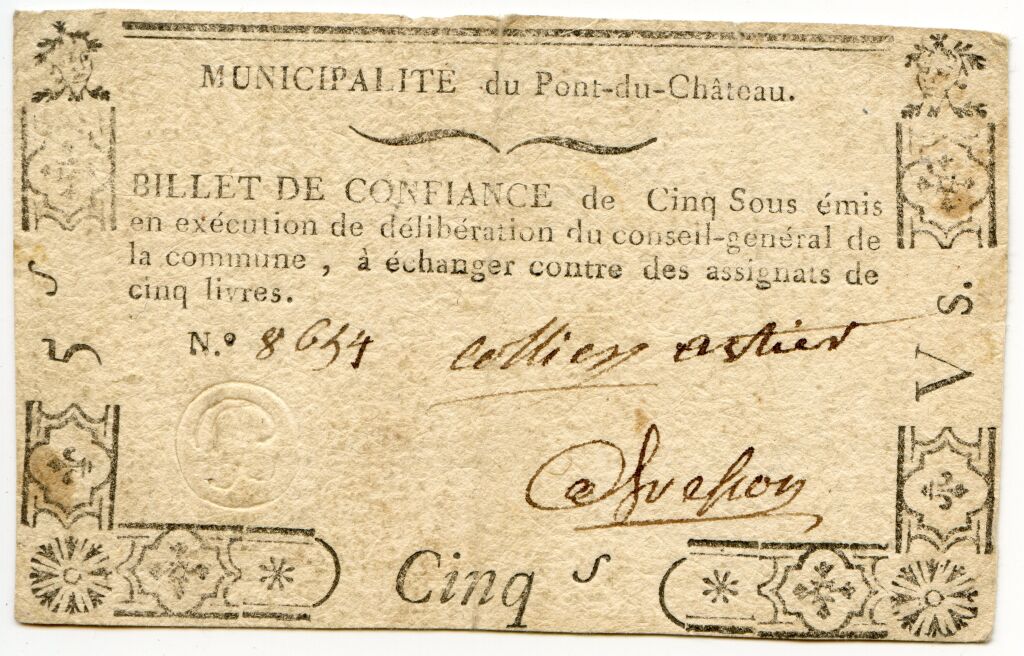 MUNICIPALITÉ du Pont-du-Château.
BILLET DE CONFIANCE de Cinq Sous émis
en exécution de délibération du conseil-genéral de
la commune, à échanger contre des assignats de
cinq livres.
N.º 8654 Collier astier
5 S
V s.
Cinq S